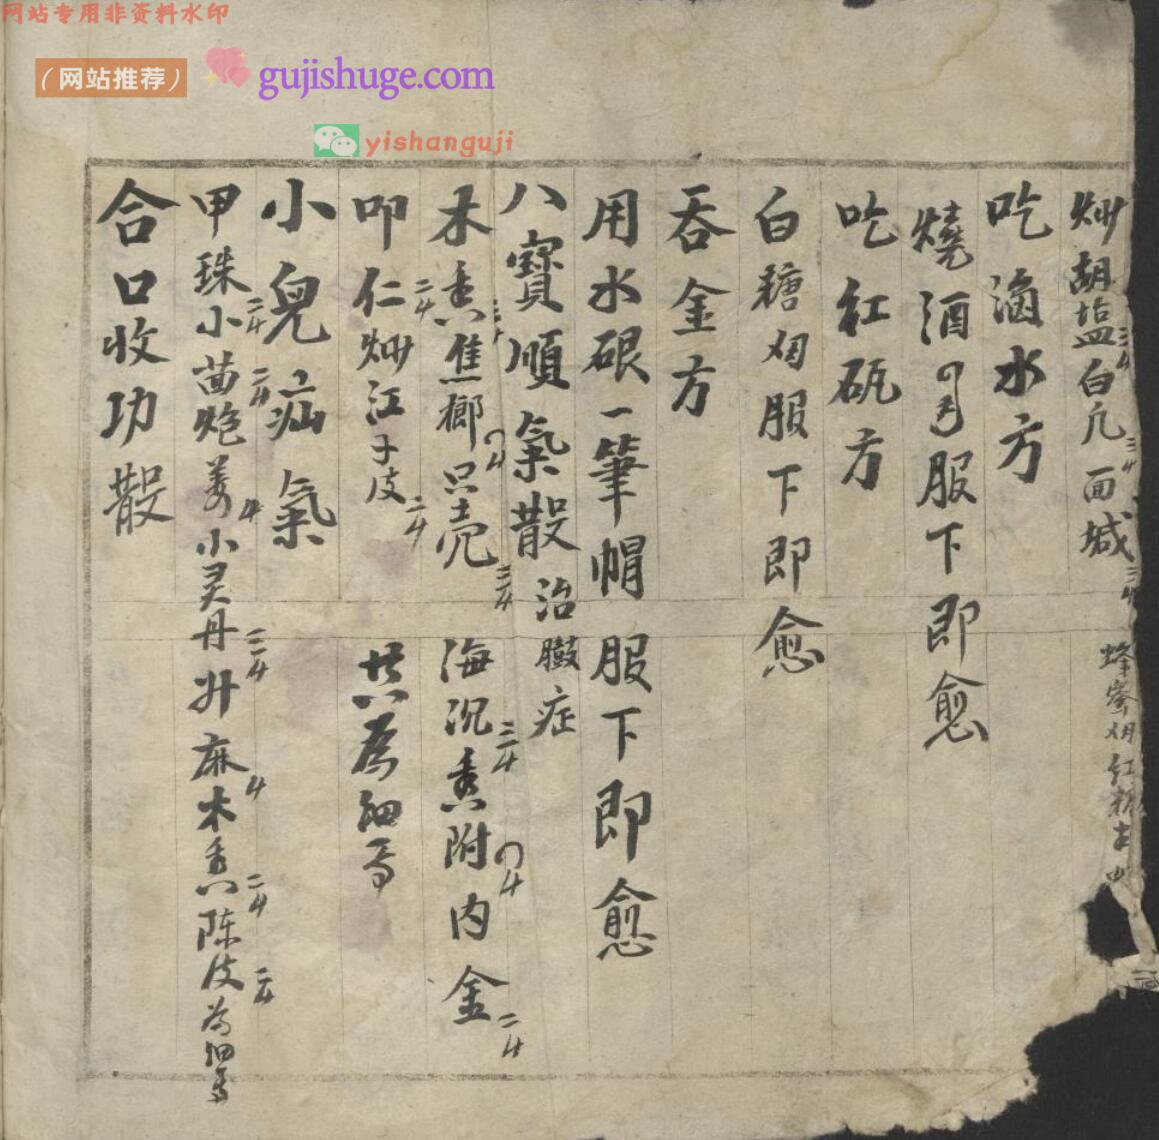 网站专用非资料水印
（网站推荐） gujishuge.com
yishanguji
炒胡塩三卜白凡三卜面堿三卜 蜂蜜 红糖
吃滷水方
燒酒 服下即愈
吃红矾方
白糖 服下即愈
吞金方
用水硍一筆帽服下即愈
八寶順氣散 治臌症
木香焦榔只壳 海沉香附内金
叩仁炒江子皮 共為细
小兒疝氣
甲珠小茴炮姜小灵丹升麻木香陈皮為细
合口收功散